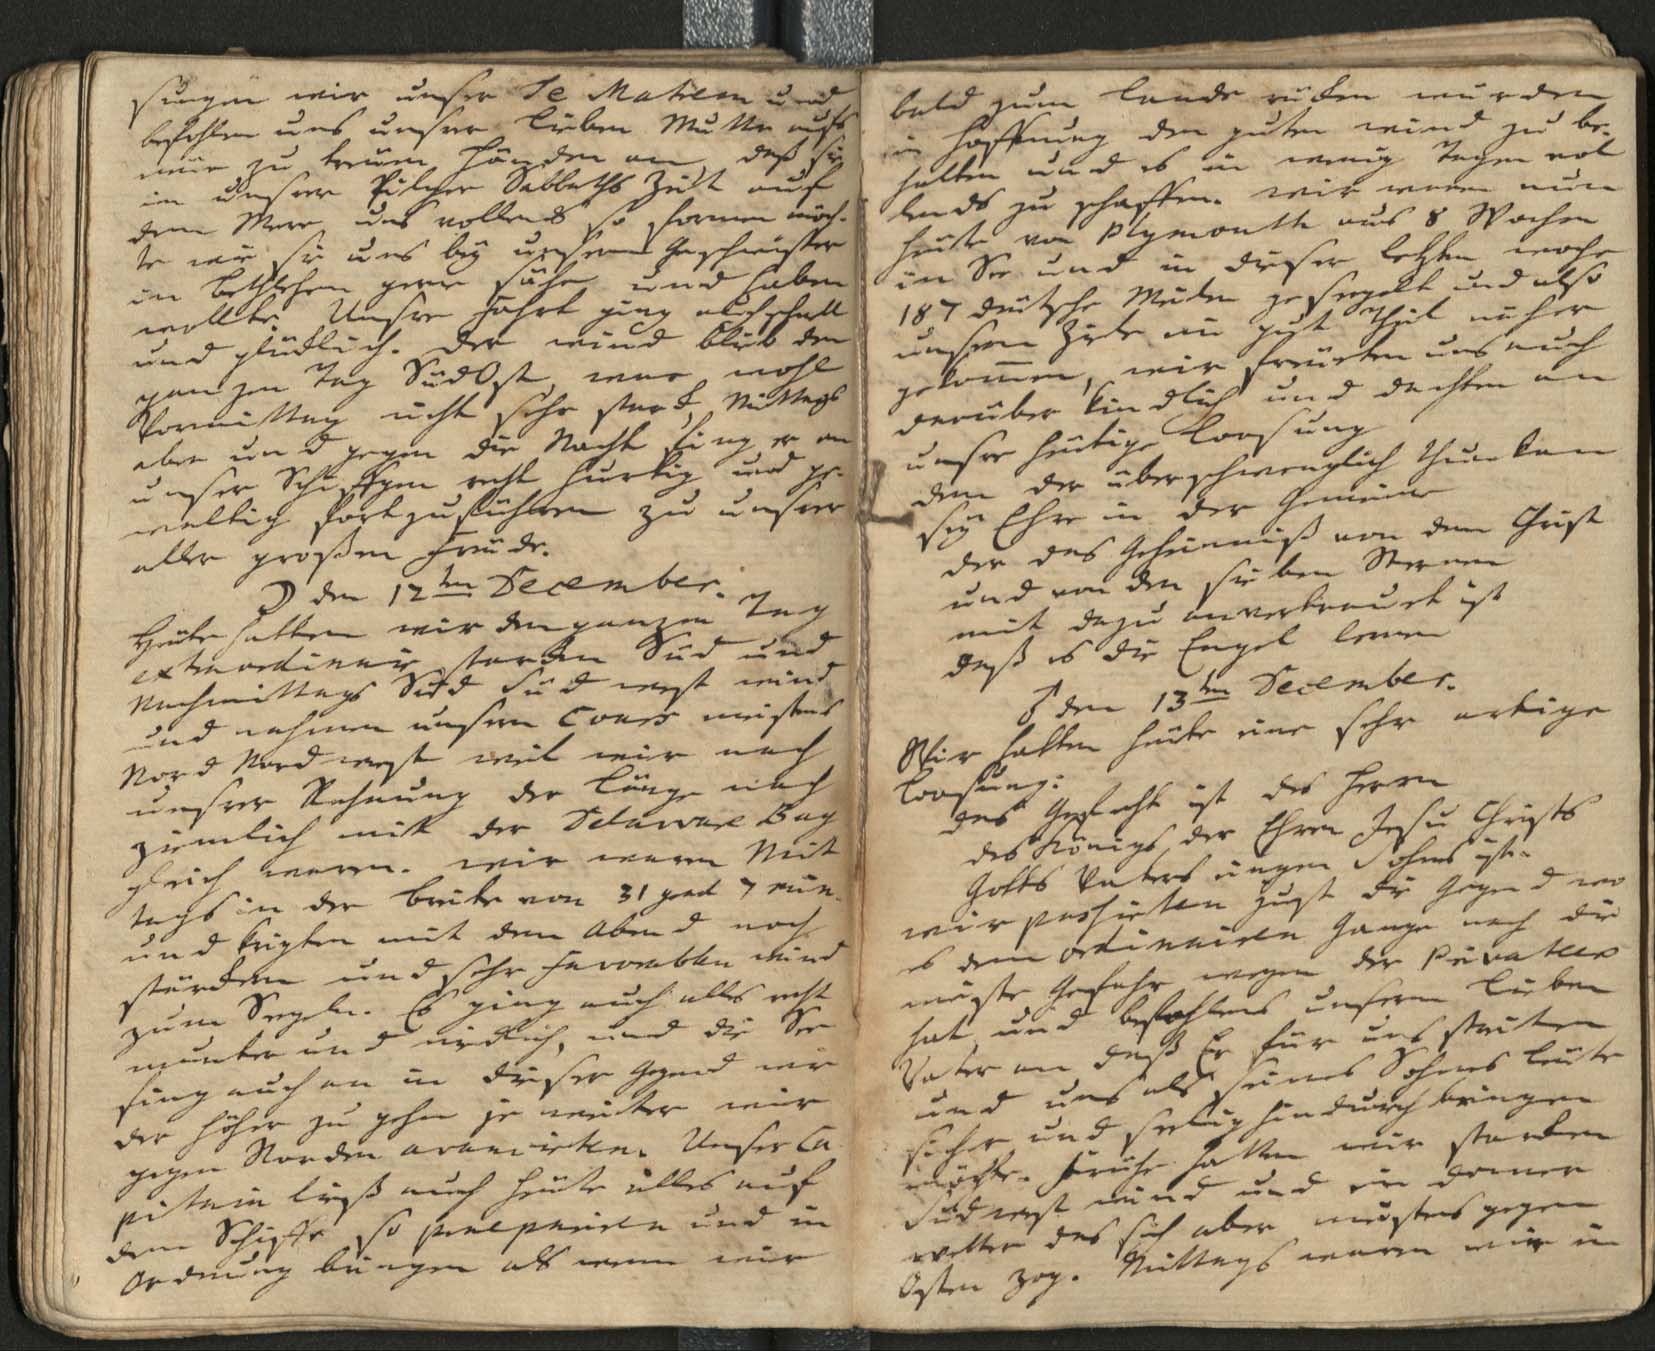 sungen wir unser Te Matrem und
befohlen uns unsrer lieben Mutter aufs
neue zu treuen Händen an, daß sie
in unsrer Pilger Sabbaths Zeit auf
dem Meer uns vollends so formen möch-
te wie sie uns bey unsern Geschwister
in Bethlehem gern sähe und haben
wollte. Unsre Fahrt ging auch schnell
und glücklich. Der wind blieb den
ganzen Tag SüdOst, war wohl
Vormittag nicht sehr starck, Mittags
aber und gegen die Nacht fing er an
unser Schiffgen recht hurtig und ge-
waltig fortzuführen zu unsrer
aller großen Freude.
☽ den 12ten December.
Heute hatten wir den ganzen Tag
extraordinair starcken Süd und
Nachmittags Süd Süd west wind
und nahmen unsern Cours meistens
Nord Nord west weil wir nach
unsrer Rechnung der Länge nach
ziemlich mit der Delaware Bay
gleich waren. wir waren Mit
tags in der breite von 31 grad 7 min.
und kriegten mit dem Abend noch
stärcken und sehr favorablen wind
zum Seegeln. Es ging auch alles recht
munter und niedlich, und die See
fing auch an in dieser Gegend wie
der höher zu gehn je weiter wir
gegen Norden avancirten. Unser Ca
pitain ließ auch heute alles auf
dem Schiffe so praepariren und in
Ordnung bringen als wenn wir
bald zum Lande rücken würden
in Hoffnung den guten wind zu be-
halten und es in wenig Tagen vol
lends zu schaffen. wir waren nun
heute von Plymouth aus 8 Wochen
in See und in dieser letzten woche
187 deutsche Meilen geseegelt und also
unserm Ziele ein gut Theil näher
gekom̅en, wir freuten uns auch
darüber kindlich und dachten an
unsre heutige Loosung
dem der überschwenglich thun kan
sey Ehre in der Gemeine
der das Geheimniß von dem Christ
und von den sieben Sternen
mit dazu anvertrauet ist
daß es die Engel lernen
♂ den 13ten December.
Wir hatten heute eine sehr artige
Loosung:
das Gefecht ist des Herrn
des Königs der Ehren Jesu Christs
Gotts Vaters eingen Sohns ist.
wir passirten jezt die Gegend wo
es dem ordinairen Gange nach die
meiste Gefahr wegen der Privateer
hat und befohlens unserm lieben
Vater an daß Er für uns streiten
und uns als seines Sohnes Leute
sicher und seelig hindurch bringen
möchte. Frühe hatten wir starcken
Südwest wind und ein donner
wetter das sich aber meistens gegen
Osten zog. Mittags waren wir in